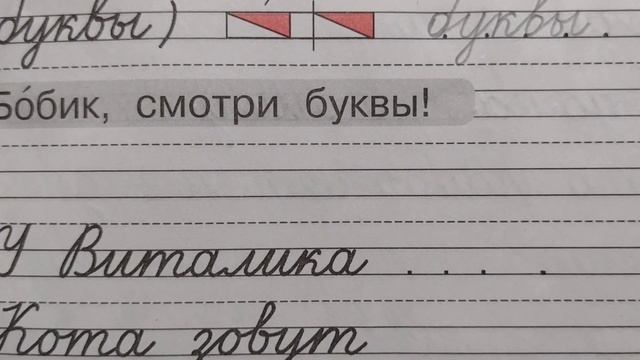 буквы) буквы.
Бо́бик, смотри буквы!
У Виталика . . . .
Кота зовут